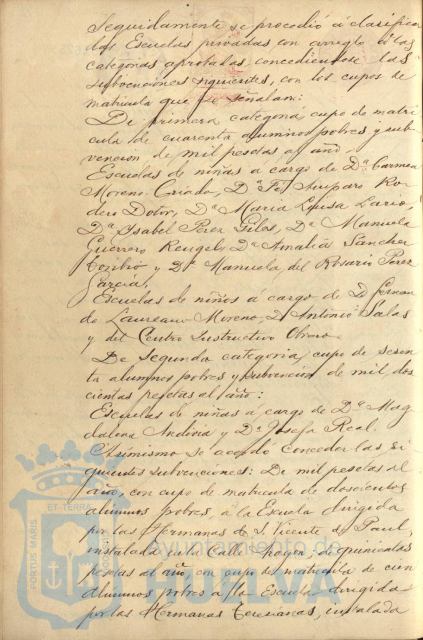 Seguidamente se procedió á clasificar
las Escuelas privadas con arreglo á las
categorias aprobadas, concediendose las
subvenciones siguientes, con los cupos de
matricula que se señalan:
De primera categoria cupo de matri
cula de cuarenta alumnos pobres y sub
vencion de mil pesetas al año
Escuelas de niñas á cargo de Dª Carmen
Moreno Criado, Dª Fé Amparo Ro
dero Dotor, Dª Maria Louisa Lario,
Dª Isabel Perez Giles, Dª Manuela
Guerrero Rengel, Dª Amalia Sanchez
Toribio y Dª Manuela del Rosario Perez
Garcia.
Escuelas de niños á cargo de D. Fernan
do Laureano Moreno, D. Antonio Salas
y del Centro Instructivo Obrero.
De segunda categoria, cupo de sesen
ta alumnos pobres y subvencion de mil dos
cientas pesetas al año:
Escuelas de niñas á cargo de Dª Mag
dalena y Dª Josefa Real.
Asimismo se acordó conceder las si
guientes subvenciones: De mil pesetas al
año, con cupo de matricula de doscientos
alumnos pobres á la Escuela dirigida
por las Hermanas de S. Vicente de Paul,
instalada en la Calle; de quinientas
pesetas al año con cupo de matricula de cien
alumnos pobres a la Escuela dirigida
por las Hermanas Teresianas, instalada
PORTUS MARIS
ET TERRAE
Ayuntamiento de
HUELVA